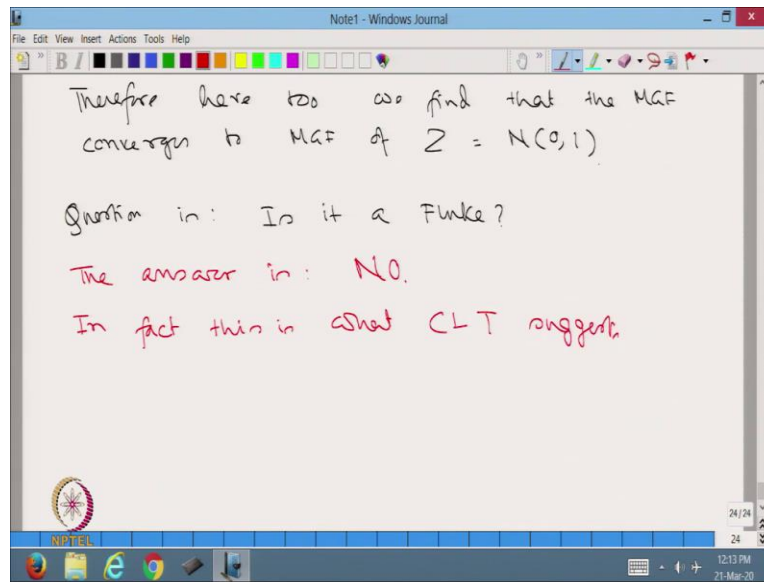 Note1 - Windows Journal
File Edit View Insert Actions Tools Help
B I
Therefore here too we find that the MGF
converges to MGF of Z = N(0,1)
Question is: Is it a Fluke?
The answer is: NO.
In fact this is what CLT suggests.
NPTEL
24/24
24
12:13 PM
21-Mar-20